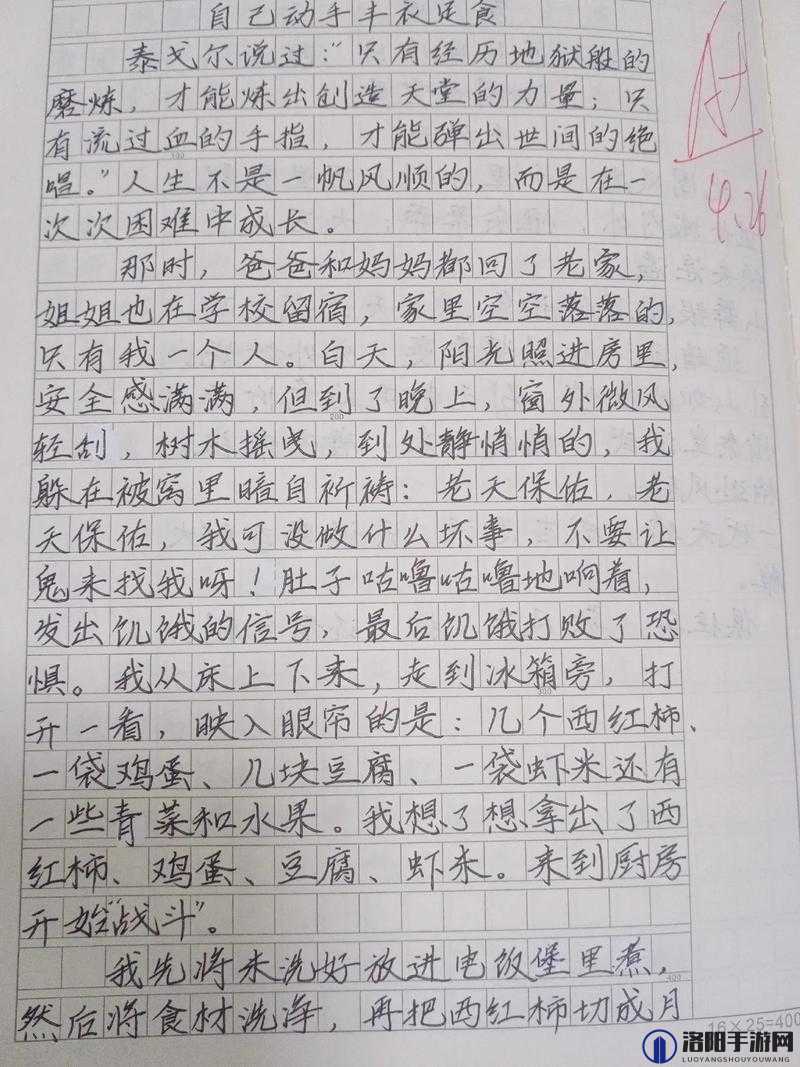 自己动手丰衣足食
泰戈尔说过:“只有经历地狱般的
磨炼，才能炼出创造天堂的力量；只
有流过血的手指，才能弹出世间的绝
唱。”人生不是一帆风顺的，而是在一
次次困难中成长。
那时，爸爸和妈妈都回了老家，
姐姐也在学校留宿，家里空空落落的，
只有我一个人。白天，阳光照进房里，
安全感满满，但到了晚上，窗外微风
轻刮，树木摇曳，到处静悄悄的，我
躲在被窝里暗自祈祷：老天保佑，老
天保佑，我可没做什么坏事，不要让
鬼来找我呀！肚子咕噜咕噜地响着，
发出饥饿的信号，最后饥饿打败了恐
惧。我从床上下来，走到冰箱旁，打
开一看，映入眼帘的是：几个西红柿、
一袋鸡蛋、几块豆腐、一袋虾米还有
一些青菜和水果。我想了想拿出了西
红柿、鸡蛋、豆腐、虾米。来到厨房
开始“战斗”。
我先将米洗好放进电饭煲里煮，
然后将食材洗净，再把西红柿切成月
4.26
16×25=400
洛阳手游网
LUOYANGSHOUYOUWANG